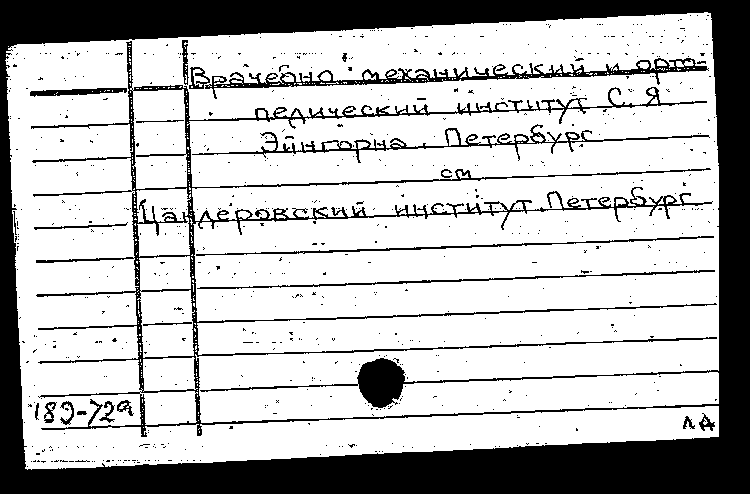 Врачебно-механический и орто-
педический институт С. Я.
Эйнгорна. Петербург
см.
Цандеровский институт. Петербург
189-72а
ЛА